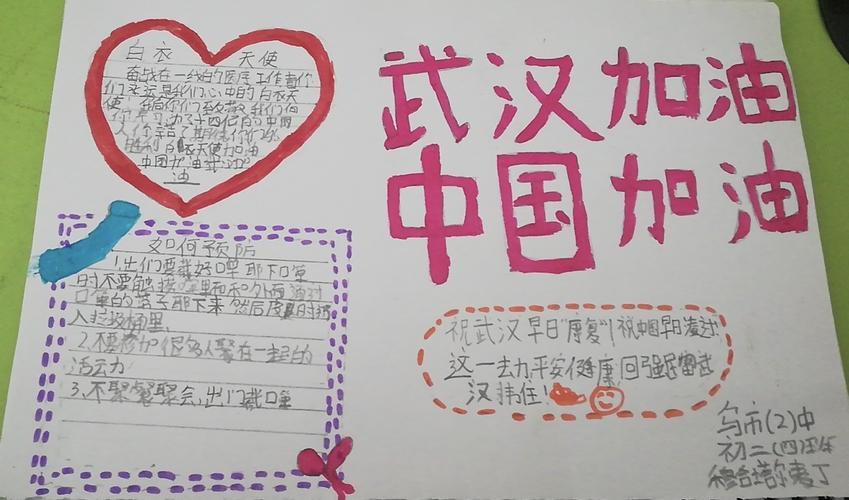 白衣 天使
奋战在一线的医疗工作者你
们永远是我们心中的白衣天
使！我向你们致敬我们向
你学习,为了十四亿的中国
人你辛苦了期待你们的
胜利白衣天使加油
中国加油武汉加
油
武汉加油
中国加油
如何预防
1.出们要戴好口罩取下口罩
时不要触摸口罩里和外面通过
口罩的带子取下来然后
入垃圾桶里,
2.不要参加很多人聚在一起的
活动
3.不聚餐聚会,出门戴口罩
祝武汉早日"康复"!祝中国早日渡过
这一去,平安健康,
汉挺住!
乌市(2)中
初二(四)班
穆合塔尔